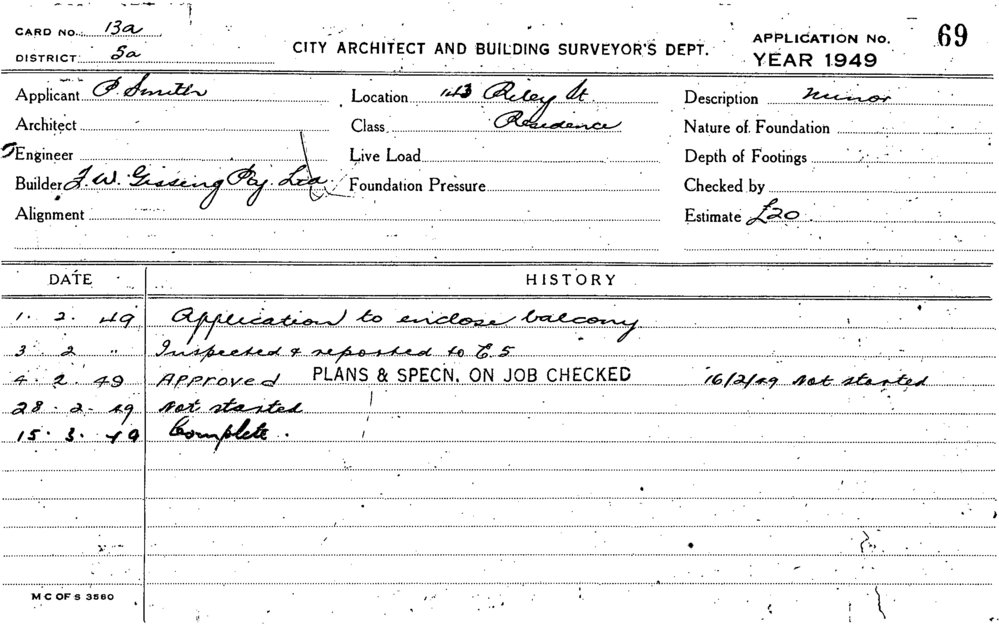 CARD NO. 13a
DISTRICT 5a
CITY ARCHITECT AND BUILDING SURVEYOR'S DEPT.
APPLICATION NO. 69
YEAR 1949
Applicant P. Smith Location 143 Riley St. Description Minor
Architect Class Residence Nature of Foundation
Engineer Live Load Depth of Footings
Builder F. W. Gissing Pty. Ltd Foundation Pressure Checked by
Alignment Estimate £20
DATE HISTORY
1. 2. 49 Application to enclose balcony
3. 2 " Inspected & reported to E.S
4. 2. 49 Approved PLANS & SPECN. ON JOB CHECKED 16/2/49 Not started
28. 2. 49 Not started
15. 3. 49 Complete.
M C OF S 3560